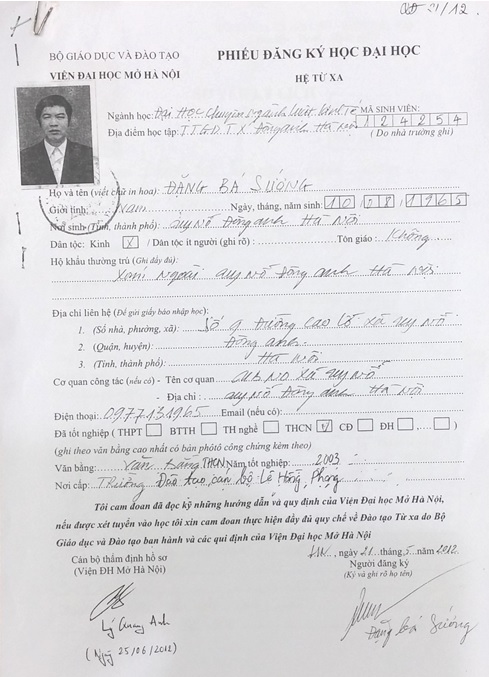 21/12.
BỘ GIÁO DỤC VÀ ĐÀO TẠO
VIỆN ĐẠI HỌC MỞ HÀ NỘI
PHIẾU ĐĂNG KÝ HỌC ĐẠI HỌC
HỆ TỪ XA
Ngành học: Đại Học Chuyên ngành Luật Kinh Tế MÃ SINH VIÊN: 1 2 4 2 5 4
Địa điểm học tập: TTGDTX Đông anh Hà Nội (Do nhà trường ghi)
Họ và tên (viết chữ in hoa): ĐẶNG BÁ SƯỚNG
Giới tính: Nam Ngày, tháng, năm sinh: 10/08/1965
Nơi sinh (Tỉnh, thành phố): Uy Nỗ Đông anh Hà Nội
Dân tộc: Kinh X / Dân tộc ít người (ghi rõ) : Tôn giáo : Không
Hộ khẩu thường trú (Ghi đầy đủ):
Xóm Ngoài Uy Nỗ Đông anh Hà Nội
Địa chỉ liên hệ (Để gửi giấy báo nhập học):
1. (Số nhà, phường, xã): Số 9 Đường Cao Lỗ xã Uy Nỗ
2. (Quận, huyện): Đông anh.
3. (Tỉnh, thành phố): Hà Nội
Cơ quan công tác (nếu có) - Tên cơ quan : UBND xã Uy Nỗ
- Địa chỉ : Uy Nỗ Đông anh Hà Nội
Điện thoại: 0977131965 Email (nếu có):
Đã tốt nghiệp ( THPT BTTH TH nghề THCN CĐ ĐH )
(ghi theo văn bằng cao nhất có bản phôtô công chứng kèm theo)
Văn bằng: Văn Bằng THCN Năm tốt nghiệp: 2003
Nơi cấp: Trường Đào tạo cán bộ Lê Hồng Phong
Tôi cam đoan đã đọc kỹ những hướng dẫn và quy định của Viện Đại học Mở Hà Nội,
nếu được xét tuyển vào học tôi xin cam đoan thực hiện đầy đủ quy chế về Đào tạo Từ xa do Bộ
Giáo dục và Đào tạo ban hành và các qui định của Viện Đại học Mở Hà Nội
HN, ngày 21 tháng 5 năm 2012
Cán bộ thẩm định hồ sơ
(Viện ĐH Mở Hà Nội)
Người đăng ký
(Ký và ghi rõ họ tên)
Lý Quang Anh
(Ngày 25/06/2012)
Đặng bá Sướng